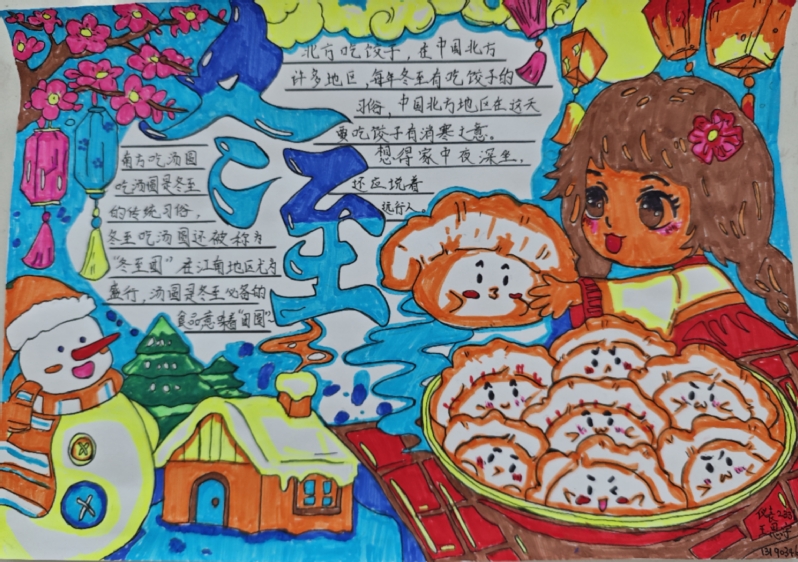 冬至
北方吃饺子，在中国北方
许多地区，每年冬至有吃饺子的
习俗，中国北方地区在这天
要吃饺子有消寒之意。
想得家中夜深坐，
还应说着
远行人。
南方吃汤圆
吃汤圆是冬至
的传统习俗，
冬至吃汤圆还被称为
“冬至团”在江南地区尤为
盛行，汤圆是冬至必备的
食品意味着“团圆”